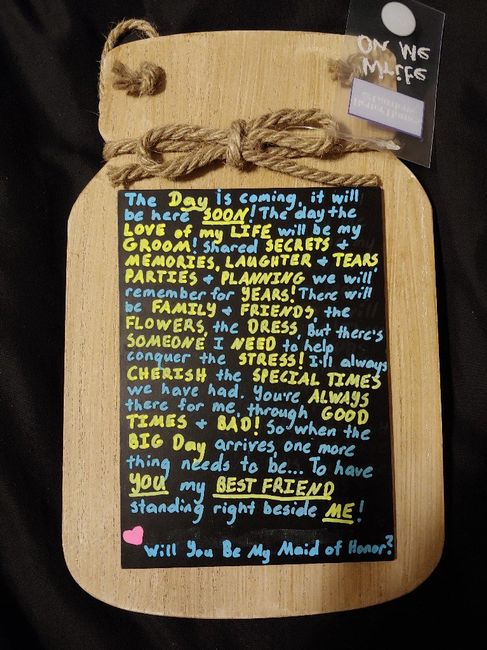 Write
ON Me
The Day is coming, it will
be here SOON! The day the
LOVE of my LIFE will be my
GROOM! Shared SECRETS +
MEMORIES, LAUGHTER + TEARS
PARTIES + PLANNING we will
remember for YEARS! There will
be FAMILY + FRIENDS, the
FLOWERS, the DRESS, But there's
SOMEONE I NEED to help
conquer the STRESS! I'll always
CHERISH the SPECIAL TIMES
we have had. You're ALWAYS
there for me, through GOOD
TIMES + BAD! So when the
BIG Day arrives, one more
thing needs to be... To have
YOU my BEST FRIEND
standing right beside ME!
Will You Be My Maid of Honor?